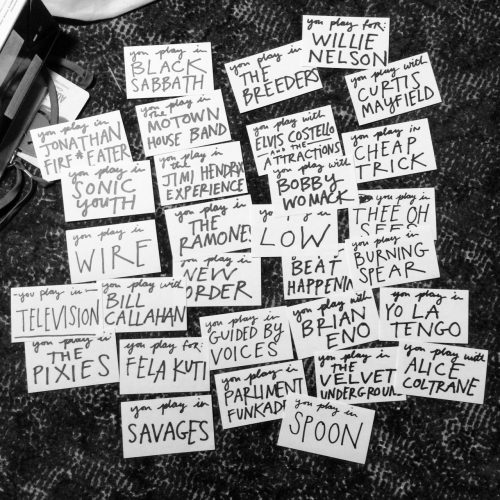 you play for:
WILLIE
NELSON
you play in
BLACK
SABBATH
you play in
THE
BREEDERS
you play with
CURTIS
MAYFIELD
you play in
The
MOTOWN
HOUSE BAND
you play in
JONATHAN
FIRE*EATER
you play with
ELVIS COSTELLO
AND THE
ATTRACTIONS
you play in
CHEAP
TRICK
you play in
the
JIMI HENDRIX
EXPERIENCE
you play in
SONIC
YOUTH
you play with
BOBBY
WOMACK
you play in
THEE OH
SEES
you play in
THE
RAMONES
you play in
LOW
you play in
WIRE
you play in
BURNING
SPEAR
BEAT
HAPPENIN
you play in
NEW
ORDER
you play in
TELEVISION
you play with
BILL
CALLAHAN
you play with
BRIAN
ENO
you play in
YO LA
TENGO
you play in
GUIDED BY
VOICES
you play in
THE
PIXIES
you play for:
FELA KUTI
you play in
THE
VELVET
UNDERGROUND
you play with
ALICE
COLTRANE
you play in
PARLIMENT
FUNKADE
you play in
SAVAGES
you play in
SPOON